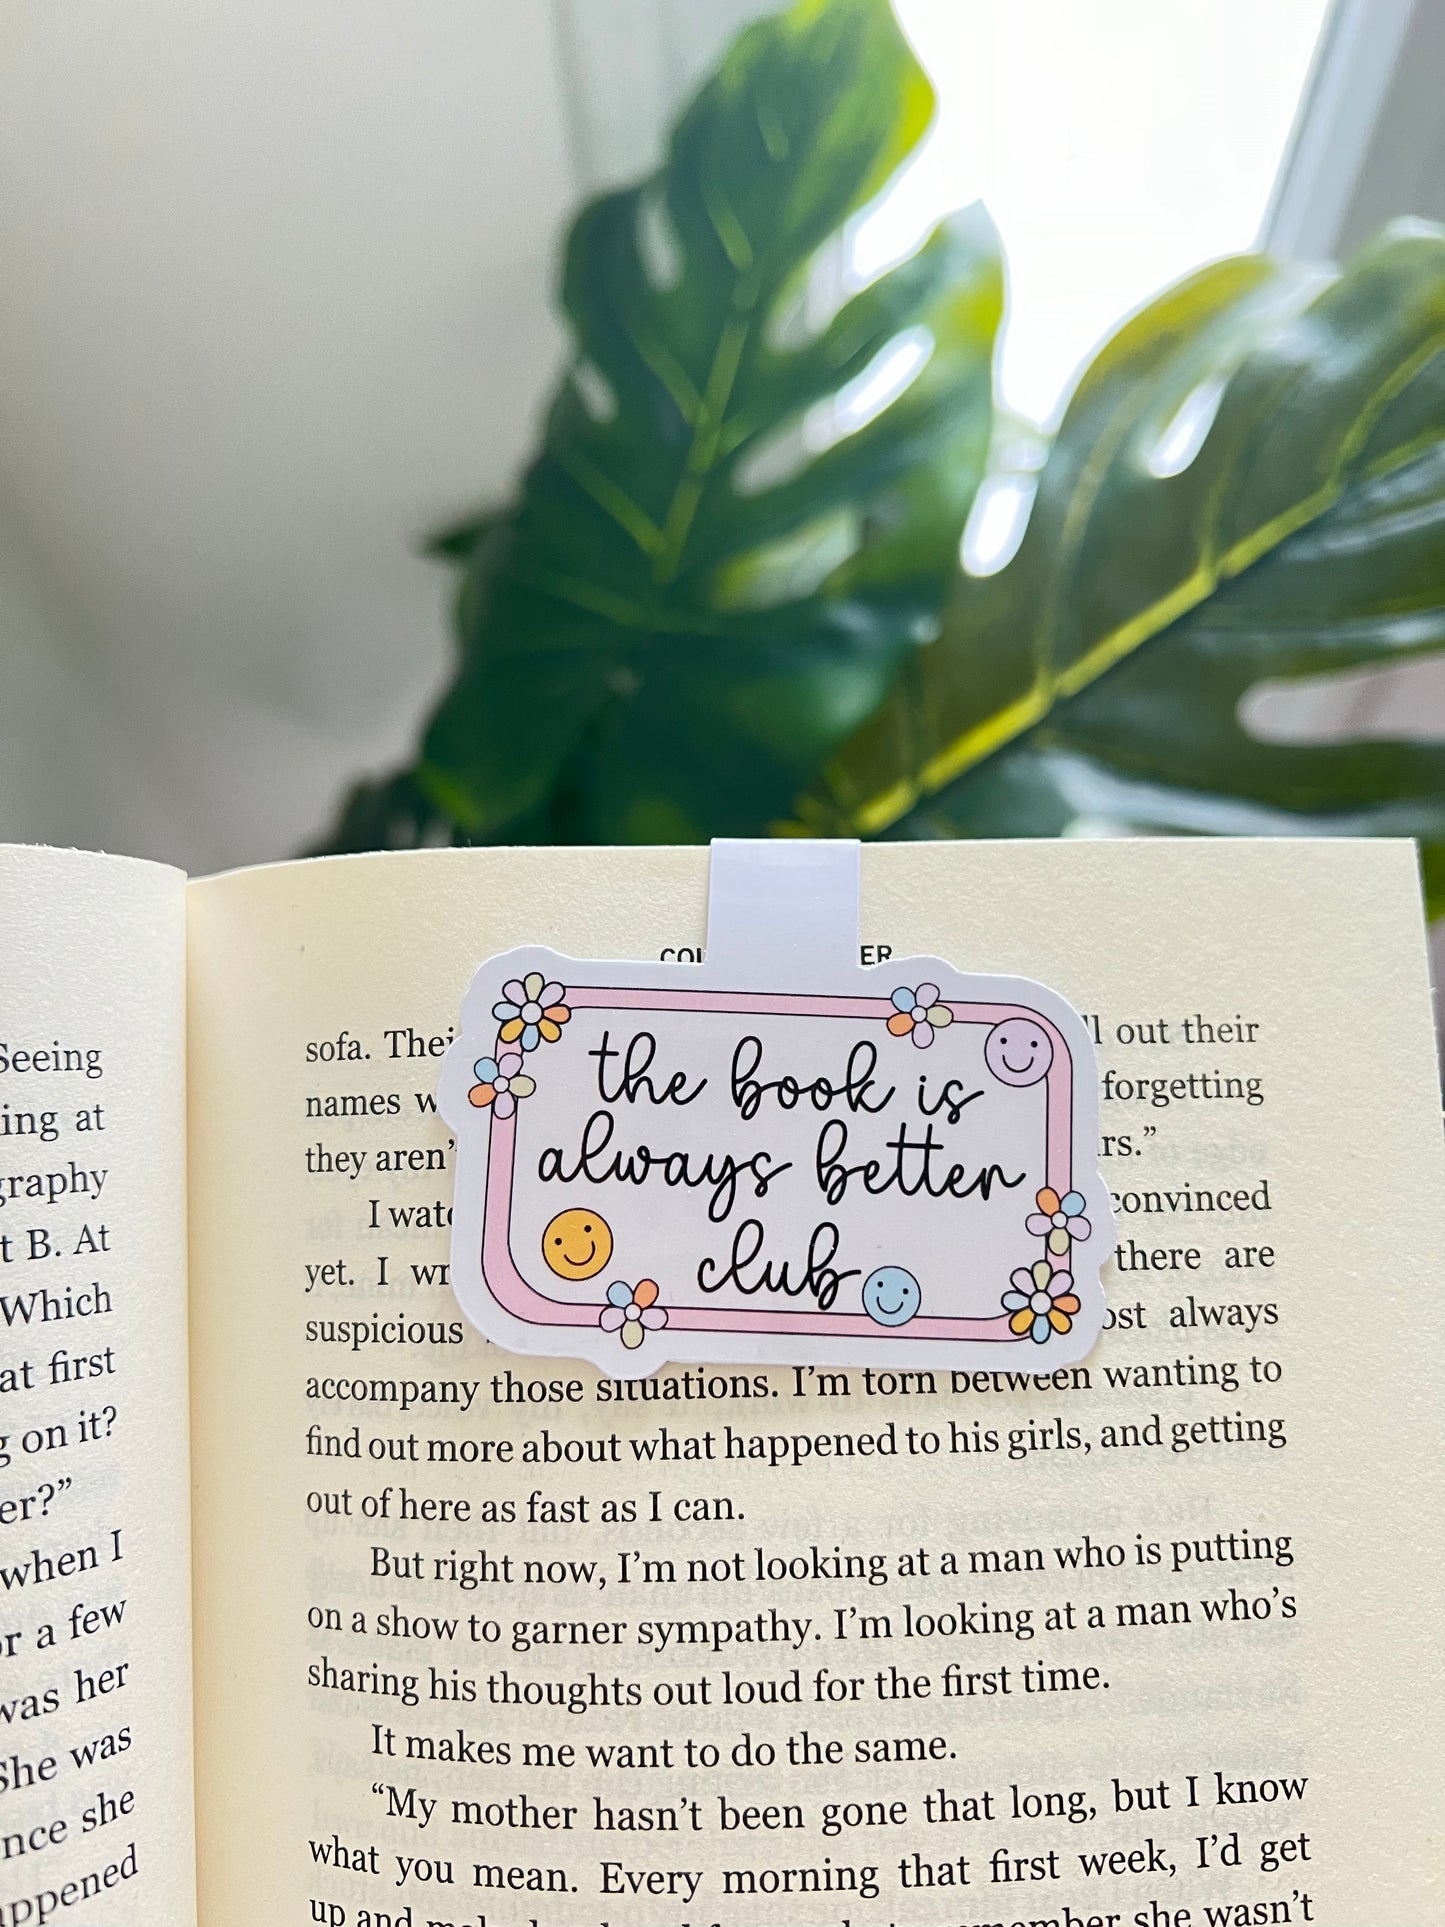 Seeing
ing at
graphy
t B. At
Which
at first
on it?
er?”
when I
r a few
was her
She was
nce she
ppened
COU ER
sofa. Thei l out their
names w forgetting
they aren’ rs.”
I wat convinced
yet. I wr there are
suspicious ost always
accompany those situations. I’m torn between wanting to
find out more about what happened to his girls, and getting
out of here as fast as I can.
But right now, I’m not looking at a man who is putting
on a show to garner sympathy. I’m looking at a man who’s
sharing his thoughts out loud for the first time.
It makes me want to do the same.
“My mother hasn’t been gone that long, but I know
what you mean. Every morning that first week, I’d get
up and she wasn’t
the book is
always better
club